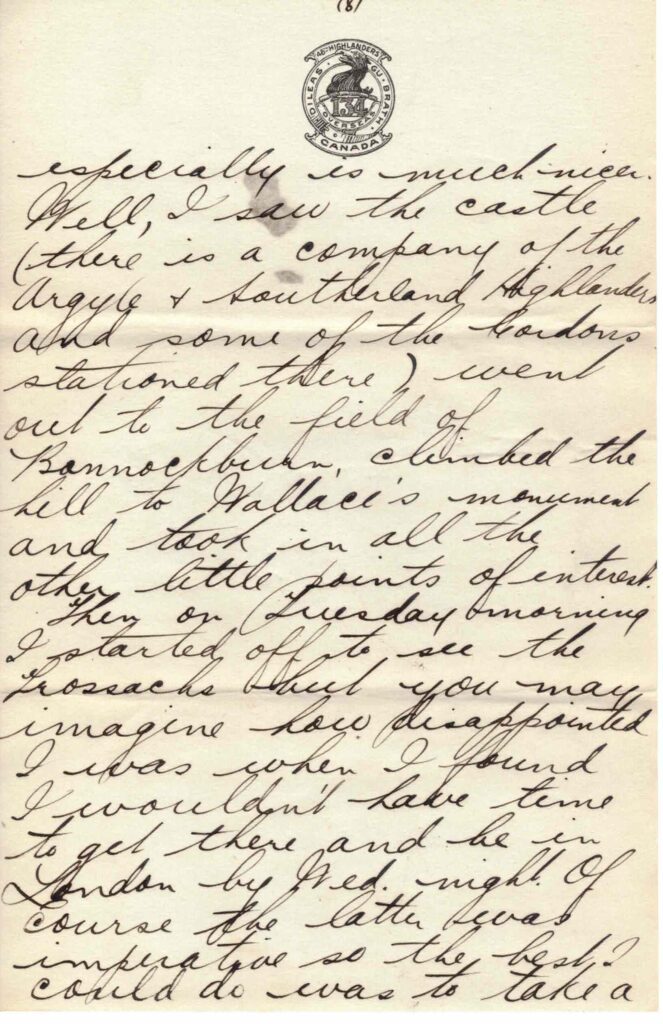 (8)
48TH HIGHLANDERS
DILEAS GU BRATH
134
OVERSEAS
CANADA
especially is much nicer.
Well, I saw the castle
(there is a company of the
Argyle & Southerland Highlanders
and some of the Gordons
stationed there) went
out to the field of
Bannockburn, climbed the
hill to Wallace's monument
and took in all the
other little points of interest.
Then on Tuesday morning
I started off to see the
Trossachs but you may
imagine how disappointed
I was when I found
I wouldn't have time
to get there and be in
London by Wed. night. Of
course the latter was
imperative so the best I
could do was to take a